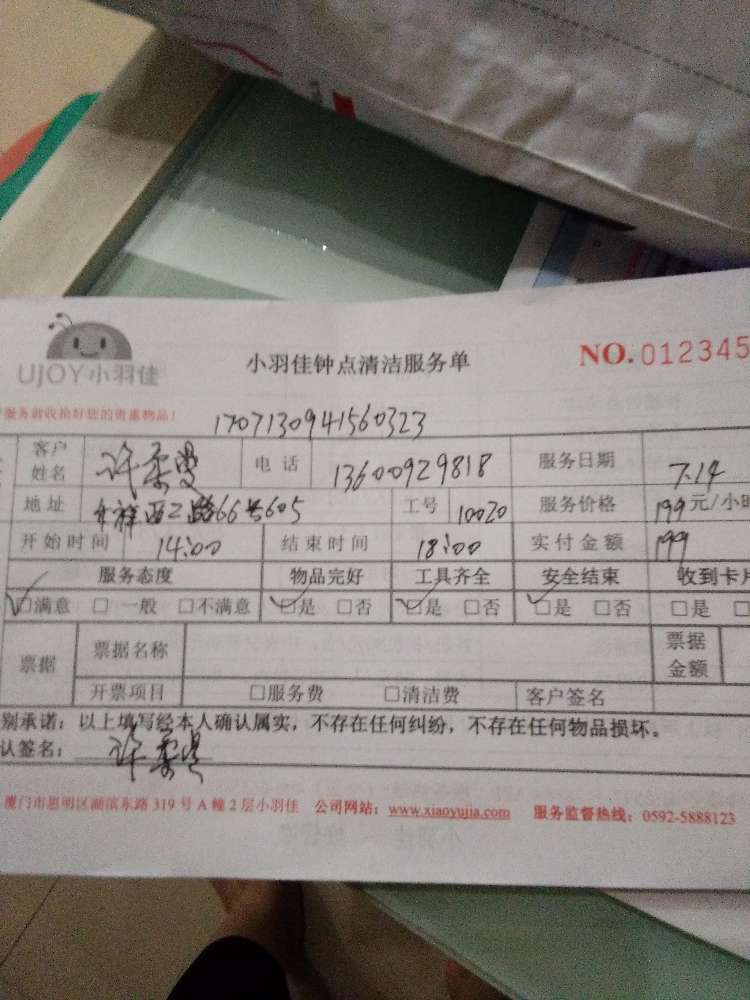 UJOY小羽佳
小羽佳钟点清洁服务单
NO.012345
服务前收拾好您的贵重物品！
1707130941560323
客户姓名 许柔曼 电话 13600929818 服务日期 7.14
地址 祥西二路66号605 工号 10020 服务价格 199元/小时
开始时间 14:00 结束时间 18:00 实付金额 199
服务态度 物品完好 工具齐全 安全结束 收到卡片
☑满意 □一般 □不满意 ☑是 □否 ☑是 □否 ☑是 □否 □是 □
票据 票据名称 票据金额
开票项目 □服务费 □清洁费 客户签名
别承诺：以上填写经本人确认属实，不存在任何纠纷，不存在任何物品损坏。
认签名： 许柔曼
厦门市思明区湖滨东路319号A幢2层小羽佳 公司网站：www.xiaoyujia.com 服务监督热线：0592-5888123